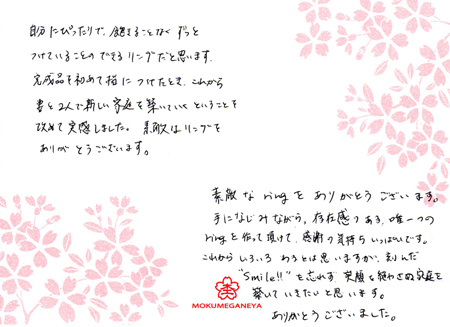 自分にぴったりで、飽きることなく ずっと
つけていることのできる リングだと思います。
完成品を初めて指に つけたとき、これから
妻と2人で新しい家庭を築いていく ということを
改めて実感しました。 素敵なリングを
ありがとうございます。
素敵な ringを ありがとうございます。
手になじみながら、存在感のある、唯一つの
ringを作って頂けて、感謝の気持ちでいっぱいです。
これから いろいろ あるとは思いますが、刻んだ
"Smile!!" を忘れず 笑顔を絶やさぬ家庭を
築いて いきたいと思います。
ありがとう ございました。
MOKUMEGANEYA